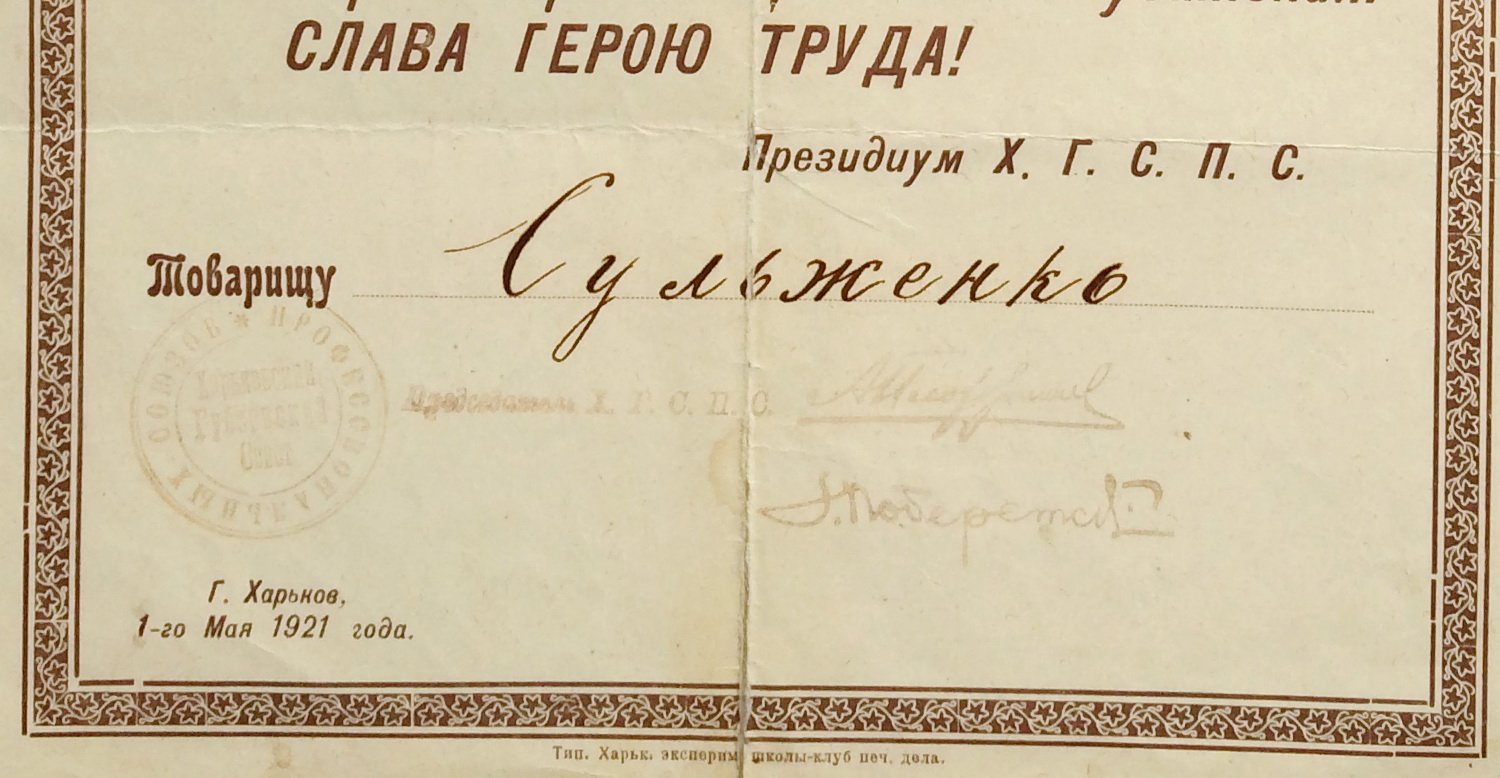 СЛАВА ГЕРОЮ ТРУДА!
Президиум Х. Г. С. П. С.
Товарищу Сульженко
СОЮЗОВ * ПРОФЕССИОНАЛЬНЫХ
Харьковский
Губернский
Совет
Председатель Х. Г. С. П. С.
Г. Харьков,
1-го Мая 1921 года.
Тип. Харьк. эксперим школы-клуб печ. дела.